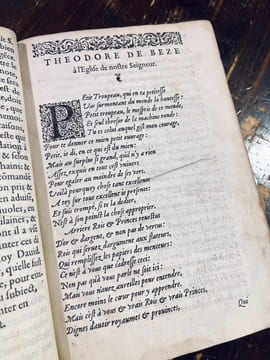 THEODORE DE BEZE
à l'Eglise de nostre Seigneur.
PEtit Troupeau, qui en ta petitesse
Vas surmontant du monde la hautesse:
Petit troupeau, le mespris de ce monde,
Et seul thresor de la machine ronde:
Tu es celui auquel gist mon courage,
Pour te donner ce mien petit ouurage:
Petit, ie di, en ce qui est du mien:
Mais au surplus si grand, qu'il n'y a rien
Assez exquis en tout cest vniuers,
Pour egaler au moindre de ses vers.
Voilà pourquoy chose tant excellente
A toy sur tout excellent ie presente:
Et suis trompé, si de la
N'est à son poinct la chose approprier.
Arriere Rois & Princes reuestus
D'or & dargent, & non pas de vertus:
Rois qui seruez d'argument aux flateurs,
Qui remplissez les papiers des menteurs:
Ce n'est à vous que s'adresse ceci:
Non pas qu'à vous parlé ne soit ici:
Mais vous n'auez aureilles pour entendre,
Encore moins le cœur pour y apprendre.
Mais c'est à vous ô vrais Rois & vrais Princes,
Dignes d'auoir royaumes & prouinces,
Qui